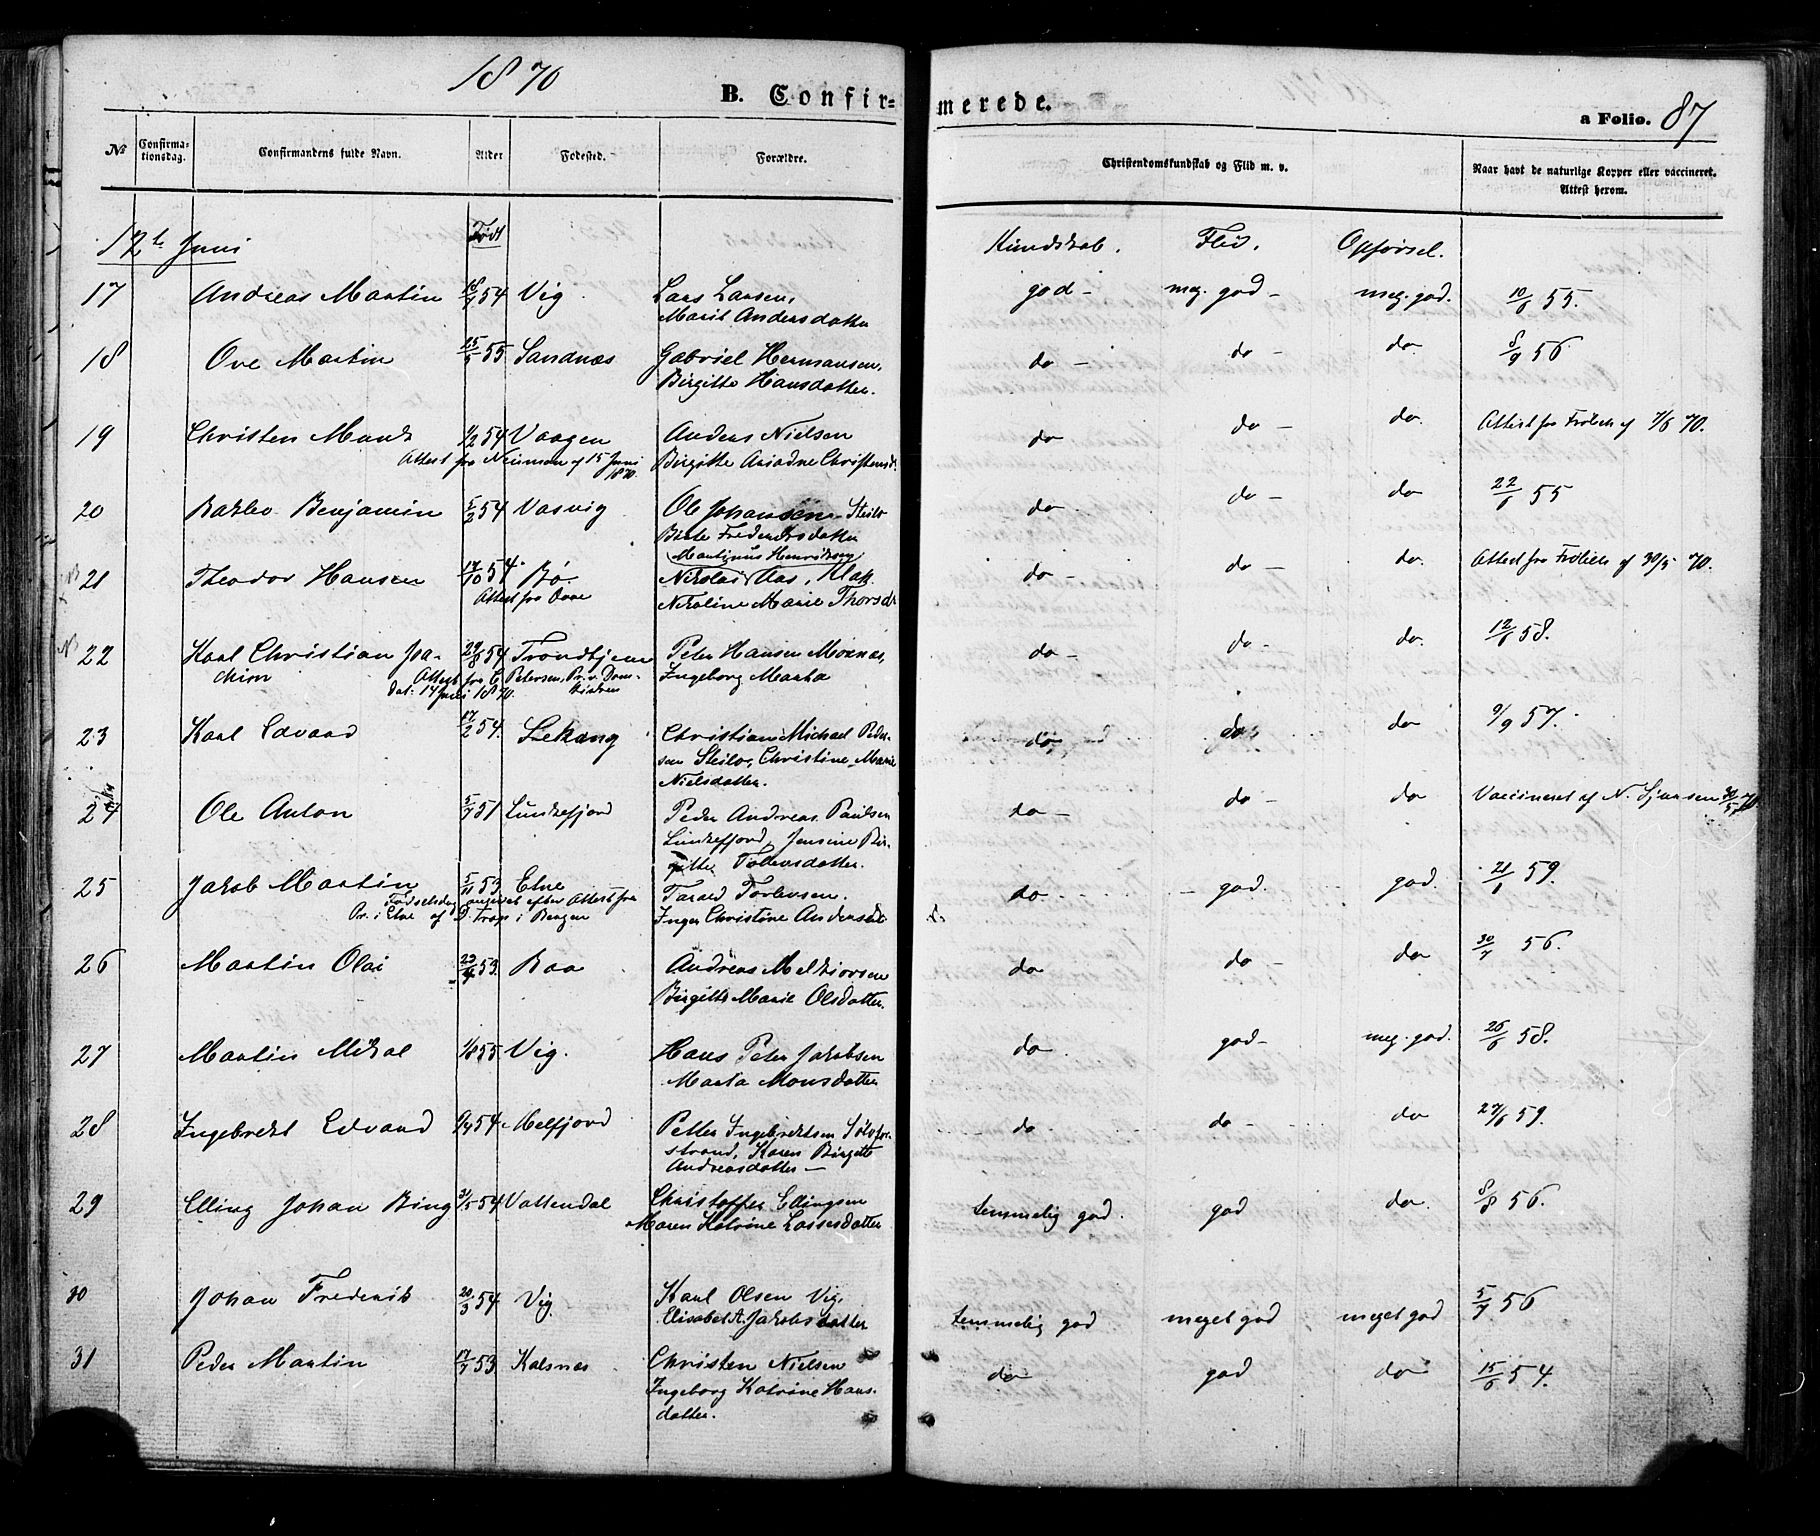 1870
B. Confir=merede.
a Folio. 87
№ Confirma-tionsdag. Confirmandens fulde Navn. Alder Fødested. Forældre. Christendomskundskab og Flid m. v. Naar havt de naturlige Kopper eller vaccineret. Attest herom.
12te Juni Født Kundskab. Flid. Opførsel.
17 Andreas Martin 54 Vig. Lars Larsen, god - meg. god - meg. god. 10/6 55.
Marit Andersdatter
18 Ove Martin 25/5 55 Sandnæs Gabriel Hermansen, do - do - do 8/9 56
Birgitte Hansdatter.
19 Christen Munk 1/2 54 Vaagen Anders Nielsen do do - do. Attest fra Frølich af 7/6 70.
Attest fra Neuman af 15 Juni 1870. Birgitte Ariadne Christensd.
20 Benjamin 5/2 54 Vasvig Ole Johansen Steilo do - do - do 22/6 55
Birte Frederiksdatter
21 Theodor Hansen 17/10 54 Bø. Martinus Henriksen do - do - do. Attest fra Frølich af 30/5 70.
Attest fra Nikolai Aas, Klak
Nikoline Marie Thorsd.
22 Karl Christian Joa- 29/8 54 Trondhjem Peter Hansen Moxnæs, do - do - do. 12/6 58.
chim Attest fra C. Petersen, Pr. v. Dom- Ingeborg Marta
dat. 14 Juni 1870. kirken
23 Karl Edvard 17/2 54. Lekang Christian Michael Peder- do do do 9/9 57.
sen Steilo, Christine Marie
Nielsdatter.
24 Ole Anton 5/7 51 Lunkefjord Peder Andreas Paulsen do - do - do Vaccineret af N. 30/5 70
Lunkefjord, Jensine Bir-
gitte Tollevsdatter.
25 Jakob Martin 5/11 53. Etne Tarald Torlevsen. do - god. god. 21/1 59.
Fødselsdag angivet efter Attest fra Inger Christine Andersd.
Pr. i Etne af D. Trap i Bergen
26 Martin Olai 23/4 53. Raa Andreas Melkiorsen do do - do 30/7 56.
Birgitte Marie Olsdatter.
27 Martin Mikal 1/8 55 Vig. Hans Peter Jakobsen do. god - meg. god. 26/6 58.
Marta Monsdatter
28 Ingebrekt Edvard 9/4 54. Melfjord Petter Ingebrektsen do. do - do 27/6 59.
strand, Karen Birgitte
Andreasdatter -
29 Elling Johan Bing 31/5 54 Vattendal Christoffer Ellingsen temmelig god. god do. 8/8 56.
Maren Katrine Lassesdatter
30 Johan Frederik 20/3 54 Vig. Karl Olsen Vig. temmelig god meget god meget god 5/7 56
Elisabet A. Jakobsdatter
31 Peder Martin 17/7 53. Kalsnæs Christen Nielsen do god do 15/6 54.
Ingeborg Katrine Hans-
datter.